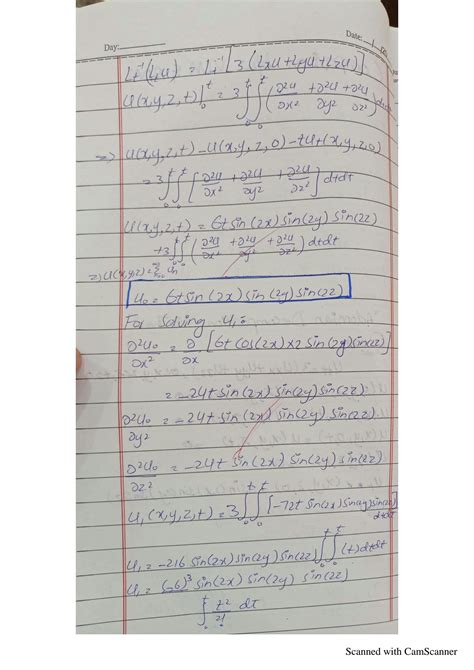 Day: Date:
Lt⁻¹(Ltu) = Lt⁻¹[3(Lxu+Lyu+Lzu)]
u(x,y,z,t)|₀ᵗ = 3∫₀ᵗ∫₀ᵗ(∂²u/∂x² + ∂²u/∂y² + ∂²u/∂z²)dtdt
=> u(x,y,z,t) - u(x,y,z,0) - tut(x,y,z,0)
= 3∫₀ᵗ∫₀ᵗ[∂²u/∂x² + ∂²u/∂y² + ∂²u/∂z²]dtdt
u(x,y,z,t) = 6t sin(2x) sin(2y) sin(2z)
+3∫₀ᵗ∫₀ᵗ(∂²u/∂x² + ∂²u/∂y² + ∂²u/∂z²)dtdt
=> u(x,y,z) = Σ un
u₀ = 6t sin(2x) sin(2y) sin(2z)
For solving u₁:
∂²u₀/∂x² = ∂/∂x [6t cos(2x)×2 sin(2y) sin(2z)]
= -24t sin(2x) sin(2y) sin(2z)
∂²u₀/∂y² = -24t sin(2x) sin(2y) sin(2z)
∂²u₀/∂z² = -24t sin(2x) sin(2y) sin(2z)
u₁(x,y,z,t) = 3∫₀ᵗ∫₀ᵗ[-72t sin(2x) sin(2y) sin(2z)]dtdt
u₁ = -216 sin(2x) sin(2y) sin(2z)∫₀ᵗ∫₀ᵗ(t)dtdt
u₁ = (-6)³ sin(2x) sin(2y) sin(2z)
∫₀ᵗ t²/2! dt
Scanned with CamScanner